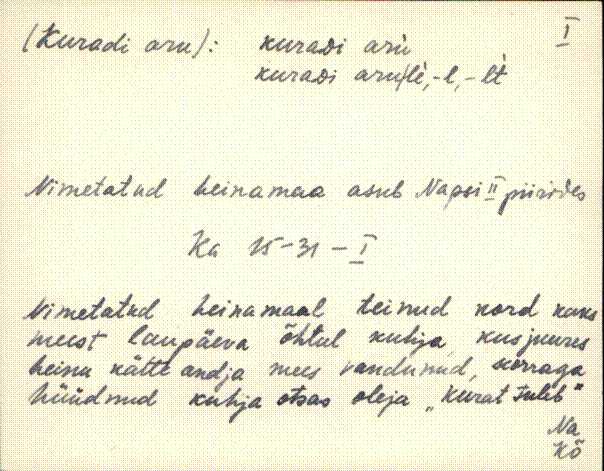 I
(Kuradi aru): kuradi aru̇
kuradi aru/lè, -l, -lt
Nimetatud heinamaa asub Napsi II piirides
Ka 15-31 - I
Nimetatud heinamaal teinud kord kaks
meest laupäeva õhtul kuhja, kusjuures
heinu kätte andja mees vandunud, korraga
hüüdnud kuhja otsas oleja „Kurat tuleb"
Na
Kõ